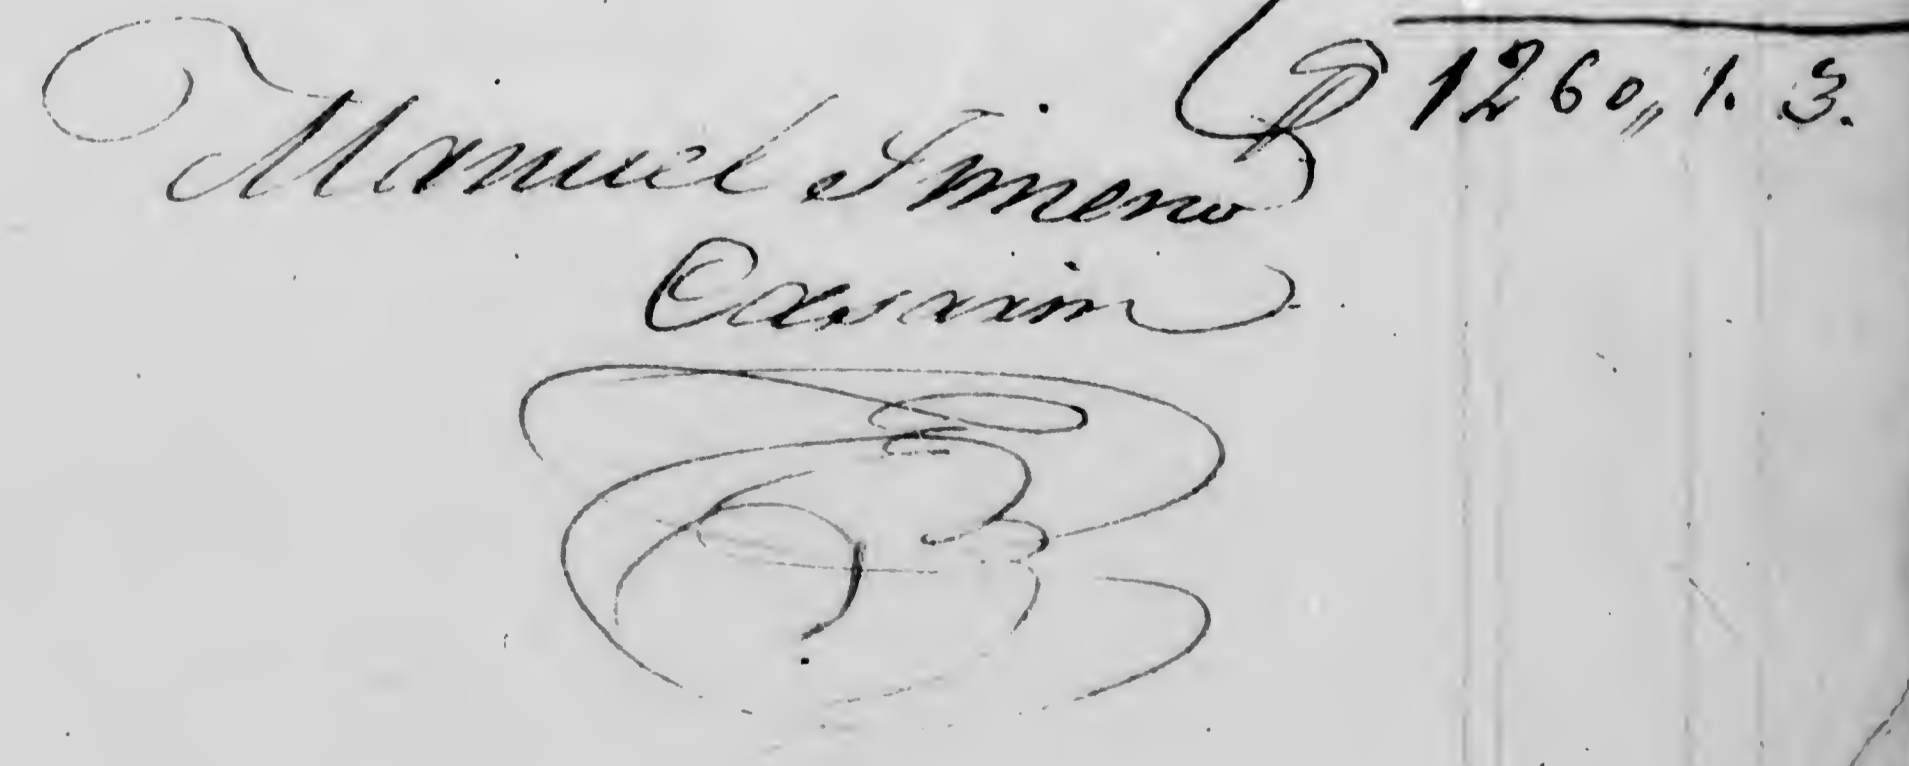 ₱ 1260,, 1. 3.
Manuel Jimeno
Casarin